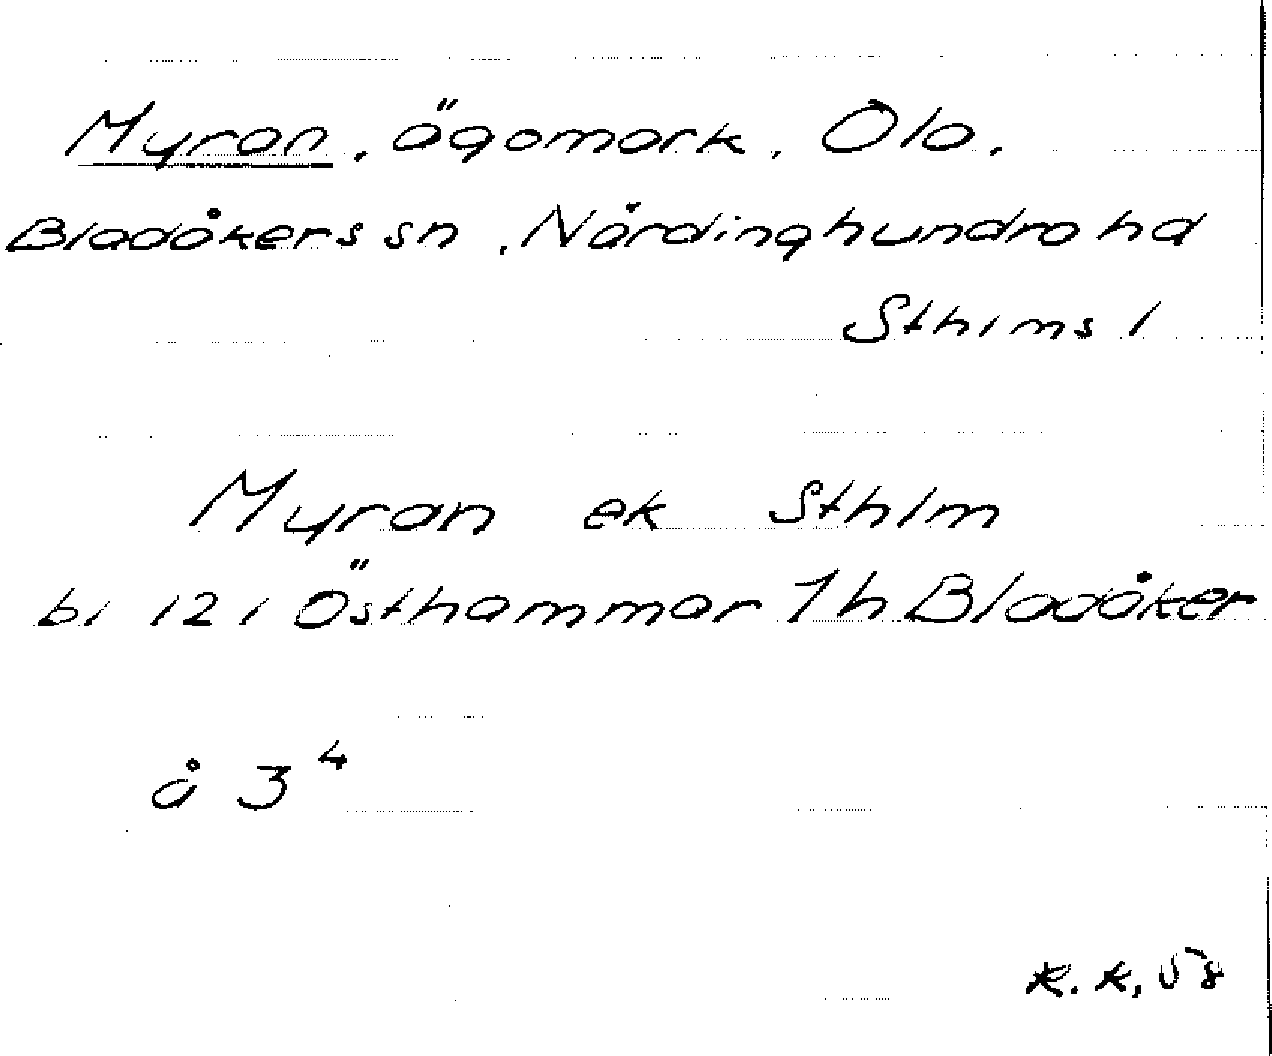 Myran, ägomark, Ola,
Bladåkers sn, Närdinghundra hd
Sthlms l
Myran ek Sthlm
bl 121 Östhammar 7h Bladåker
å 3⁴
R.K, 58